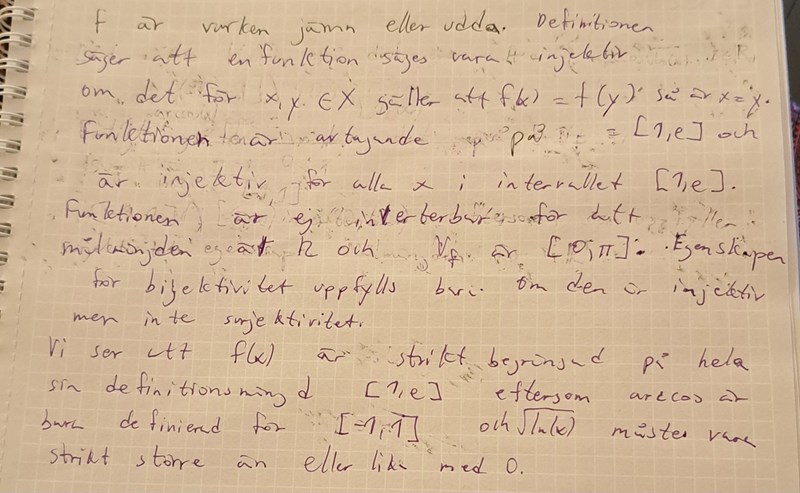 f är varken jämn eller udda. Definitionen
säger att en funktion säges vara injektiv
om det för x, y ∈ X gäller att f(x) = f(y) så är x = y.
Funktionen är avtagande på = [1,e] och
är injektiv för alla x i intervallet [1,e].
Funktionen är ej inverterbar för att
målmängden är R och V_f är [0,π]. Egenskapen
för bijektivitet uppfylls bara om den är injektiv
men inte surjektivitet.
Vi ser att f(x) är strikt begränsad på hela
sin definitionsmängd [1,e] eftersom arccos är
bara definierad för [-1,1] och √ln(x) måste vara
strikt större än eller lika med 0.